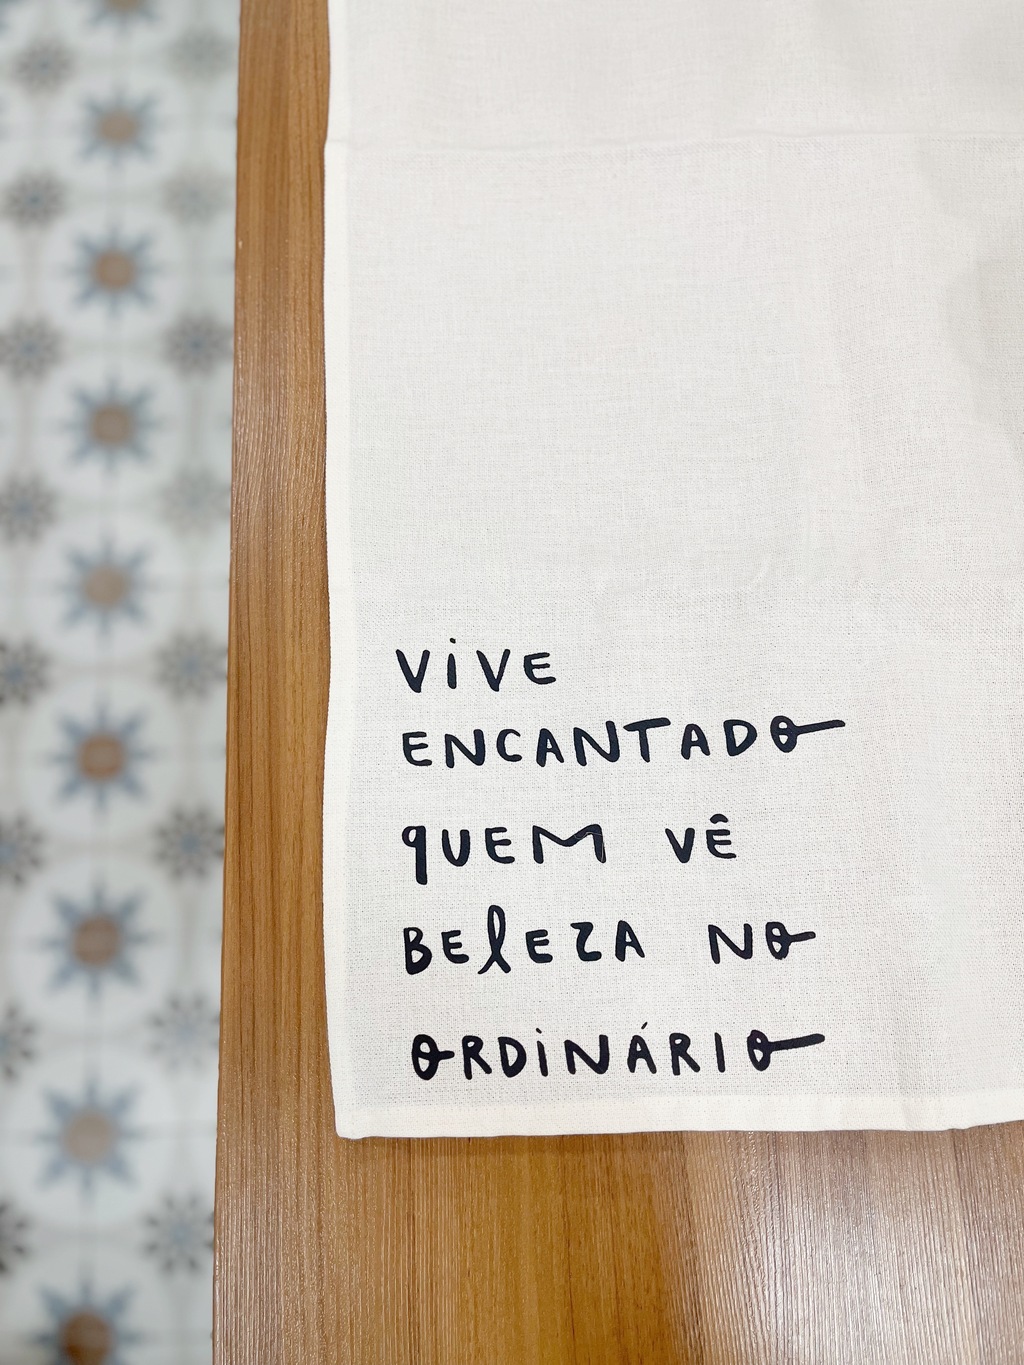 ViVE
ENCANTADO
qUEM VÊ
BElEZA NO
ORDiNÁRIO